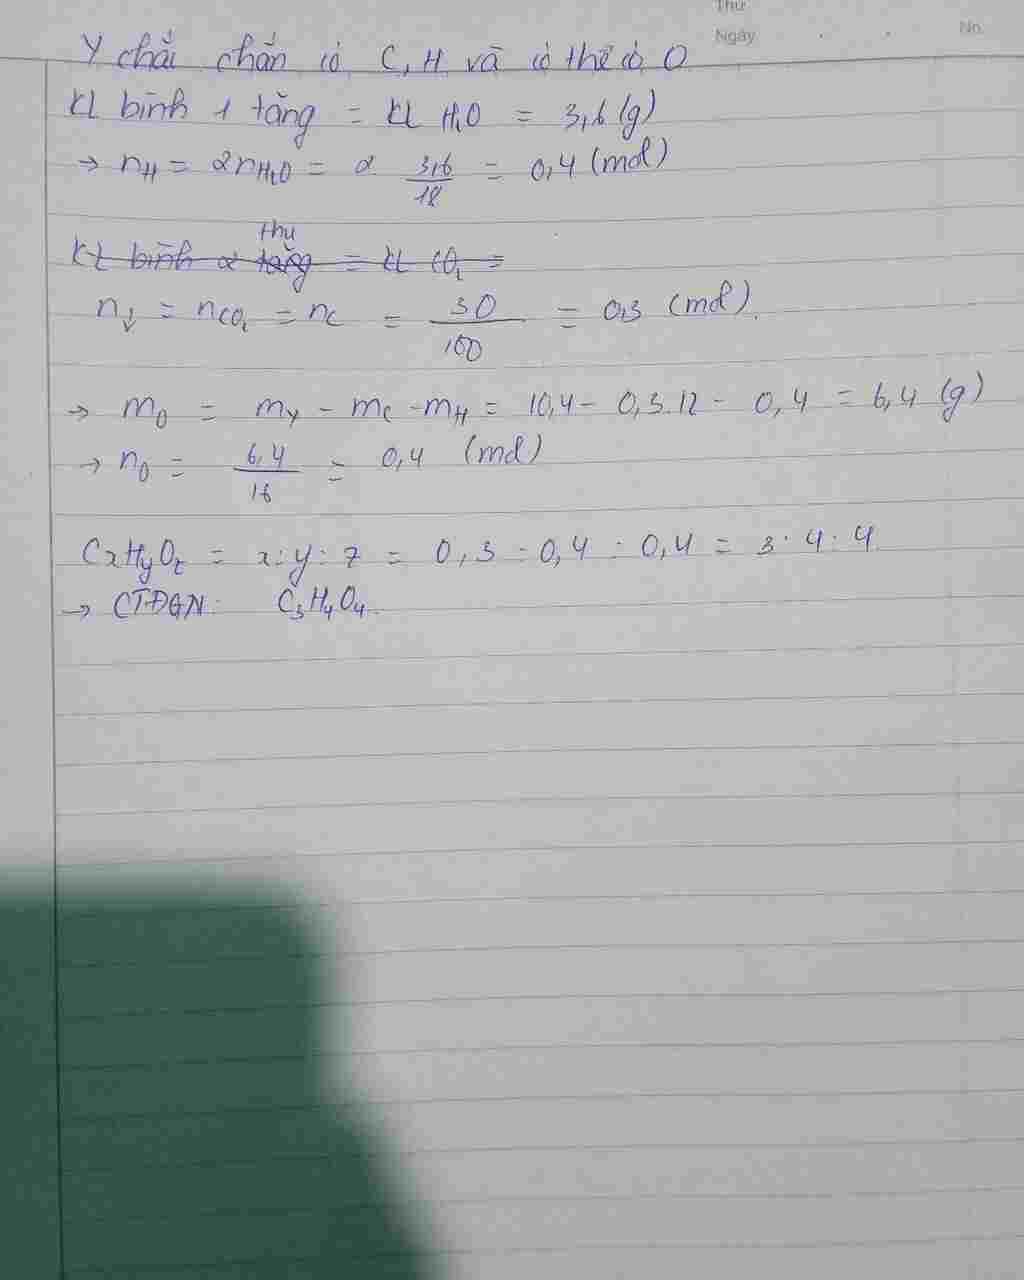 Thứ
Ngày . . No.
Y chắc chắn có C, H và có thể có O
KL bình 1 tăng = KL H₂O = 3,6 (g)
→ nH = 2nH₂O = 2 3,6/18 = 0,4 (mol)
thu
KL bình 2 tăng = KL CO₂ =
n↓ = nCO₂ = nC = 30/100 = 0,3 (mol).
→ mO = mY - mC - mH = 10,4 - 0,3.12 - 0,4 = 6,4 (g)
→ nO = 6,4/16 = 0,4 (mol)
CxHyOz = x:y:z = 0,3 : 0,4 : 0,4 = 3:4:4
→ CTĐGN: C₃H₄O₄.